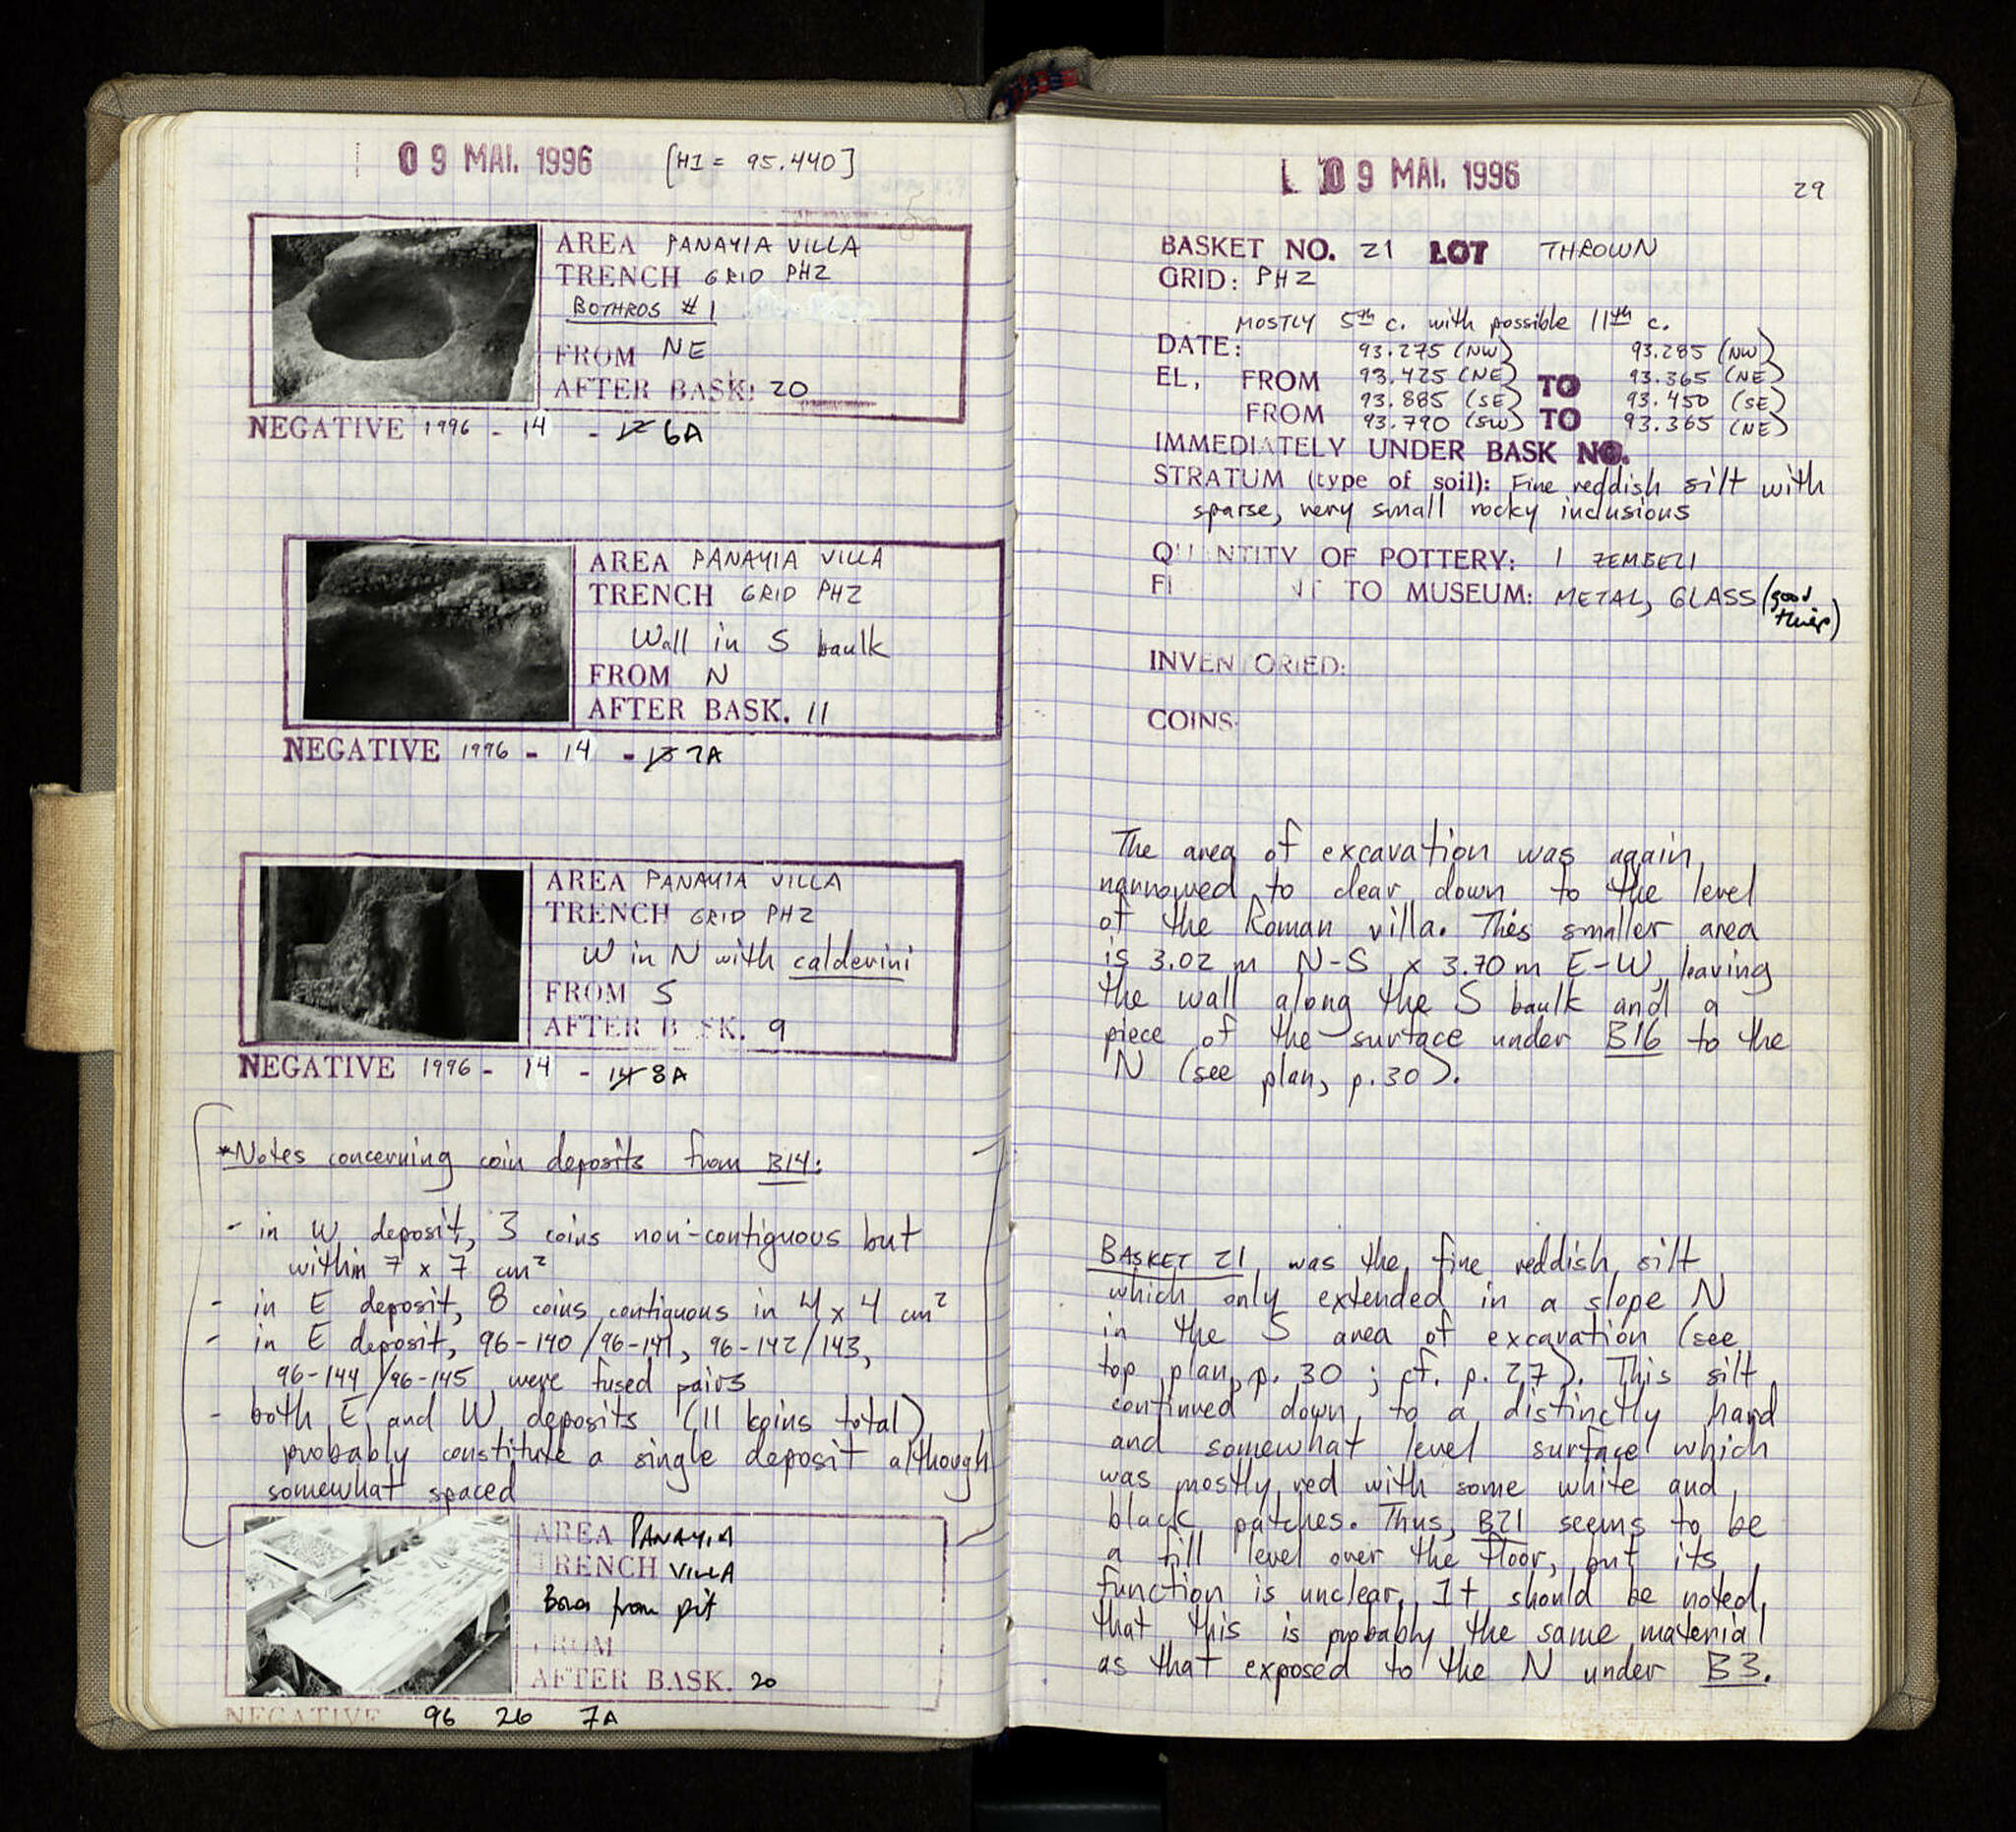 09 MAI. 1996 [HI = 95.440]
AREA PANAYIA VILLA
TRENCH GRID PH2
BOTHROS #1
FROM NE
AFTER BASK: 20
NEGATIVE 1996 - 14 - 6A
AREA PANAYIA VILLA
TRENCH GRID PH2
Wall in S baulk
FROM N
AFTER BASK. 11
NEGATIVE 1996 - 14 - 7A
AREA PANAYIA VILLA
TRENCH GRID PH2
W in N with calderini
FROM S
AFTER B SK. 9
NEGATIVE 1996 - 14 - 14 8A
*Notes concerning coin deposits from B14:
- in W deposit, 3 coins non-contiguous but
within 7 x 7 cm²
- in E deposit, 8 coins contiguous in 4 x 4 cm²
- in E deposit, 96-140/96-141, 96-142/143,
96-144/96-145 were fused pairs
- both E and W deposits (11 koins total)
probably constitute a single deposit although
somewhat spaced
AREA PANAYIA
TRENCH VILLA
from pit
FROM
AFTER BASK. 20
NEGATIVE 96 26 7A
09 MAI. 1996
29
BASKET NO. 21 LOT THROWN
GRID: PH2
MOSTLY 5th c. with possible 11th c.
DATE: 93.275 (NW) 93.285 (NW)
EL, FROM 93.425 (NE) TO 93.365 (NE)
93.885 (SE) 93.450 (SE)
FROM 93.790 (SW) TO 93.365 (NE)
IMMEDIATELY UNDER BASK NO.
STRATUM (type of soil): Fine reddish silt with
sparse, very small rocky inclusions
QU NTITY OF POTTERY: 1 ZEMBELI
FI TO MUSEUM: METAL, GLASS (good
things)
INVEN ORIED:
COINS
The area of excavation was again
narrowed to clear down to the level
of the Roman villa. This smaller area
is 3.02 m N-S x 3.70 m E-W, leaving
the wall along the S baulk and a
piece of the surface under B16 to the
N (see plan, p. 30).
BASKET 21 was the fine reddish silt
which only extended in a slope N
in the S area of excavation (see
top plan, p. 30; cf. p. 27). This silt
continued down to a distinctly hard
and somewhat level surface which
was mostly red with some white and
black patches. Thus, B21 seems to be
a fill level over the floor, but its
function is unclear. It should be noted
that this is probably the same material
as that exposed to the N under B3.